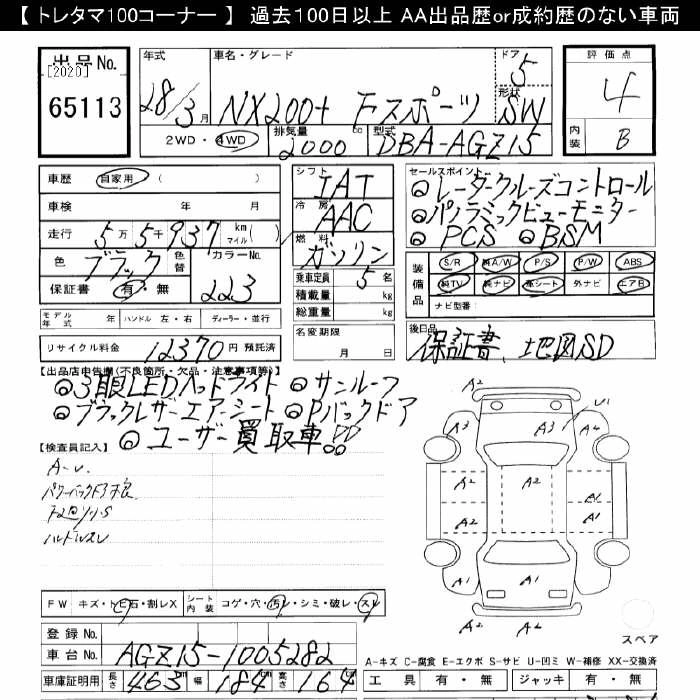 【 トレタマ100コーナー 】 過去100日以上 AA出品歴or成約歴のない車両
出品No.
[2020]
65113
年式
28/3月
車名・グレード
NX200t Fスポーツ
ドア
5
形状
SW
2WD・4WD
排気量
2000 cc
型式
DBA-AGZ15
評価点
4
内装
B
車歴 自家用 ( )
車検 年 月
走行 5万5千937 km マイル ( )
色 ブラック 色替 カラーNo. 223
保証書 有・無
シフト
IAT
冷房
AAC
燃料
ガソリン
乗車定員 5名
積載量 kg
総重量 kg
名変期限
月 日
セールスポイント
◎レーダークルーズコントロール
◎パノラミックビューモニター
◎PCS ◎BSM
装備品
S/R 純A/W P/S P/W ABS
純TV 純ナビ 革シート 外ナビ エアB
ナビ型番:
モデル年式 年 ハンドル 左・右 ディーラー・並行
リサイクル料金 12370円 預託済
後日品
保証書、地図SD
【出品店申告欄(不良箇所・欠品・注意事項等)】
◎3眼LEDヘッドライト ◎サンルーフ
◎ブラックレザーエアーシート ◎Pバックドア
◎ユーザー買取車!!
【検査員記入】
A-U.
パワーバックドア不良
ハンドルスレ
A2
A3
A3
U1
A2
A2
A2
A2
A2
A1
A1
A1
A1
A1
A1
A2
スペア
FW キズ・トビ石・割レX シート内装 コゲ・穴・汚レ・シミ・破レ・スレ
登録No.
車台No. AGZ15-1005282
車庫証明用 長さ 463 幅 184 高さ 164
A-キズ C-腐食 E-エクボ S-サビ U-凹ミ W-補修 XX-交換済
工具 有・無 ジャッキ 有・無